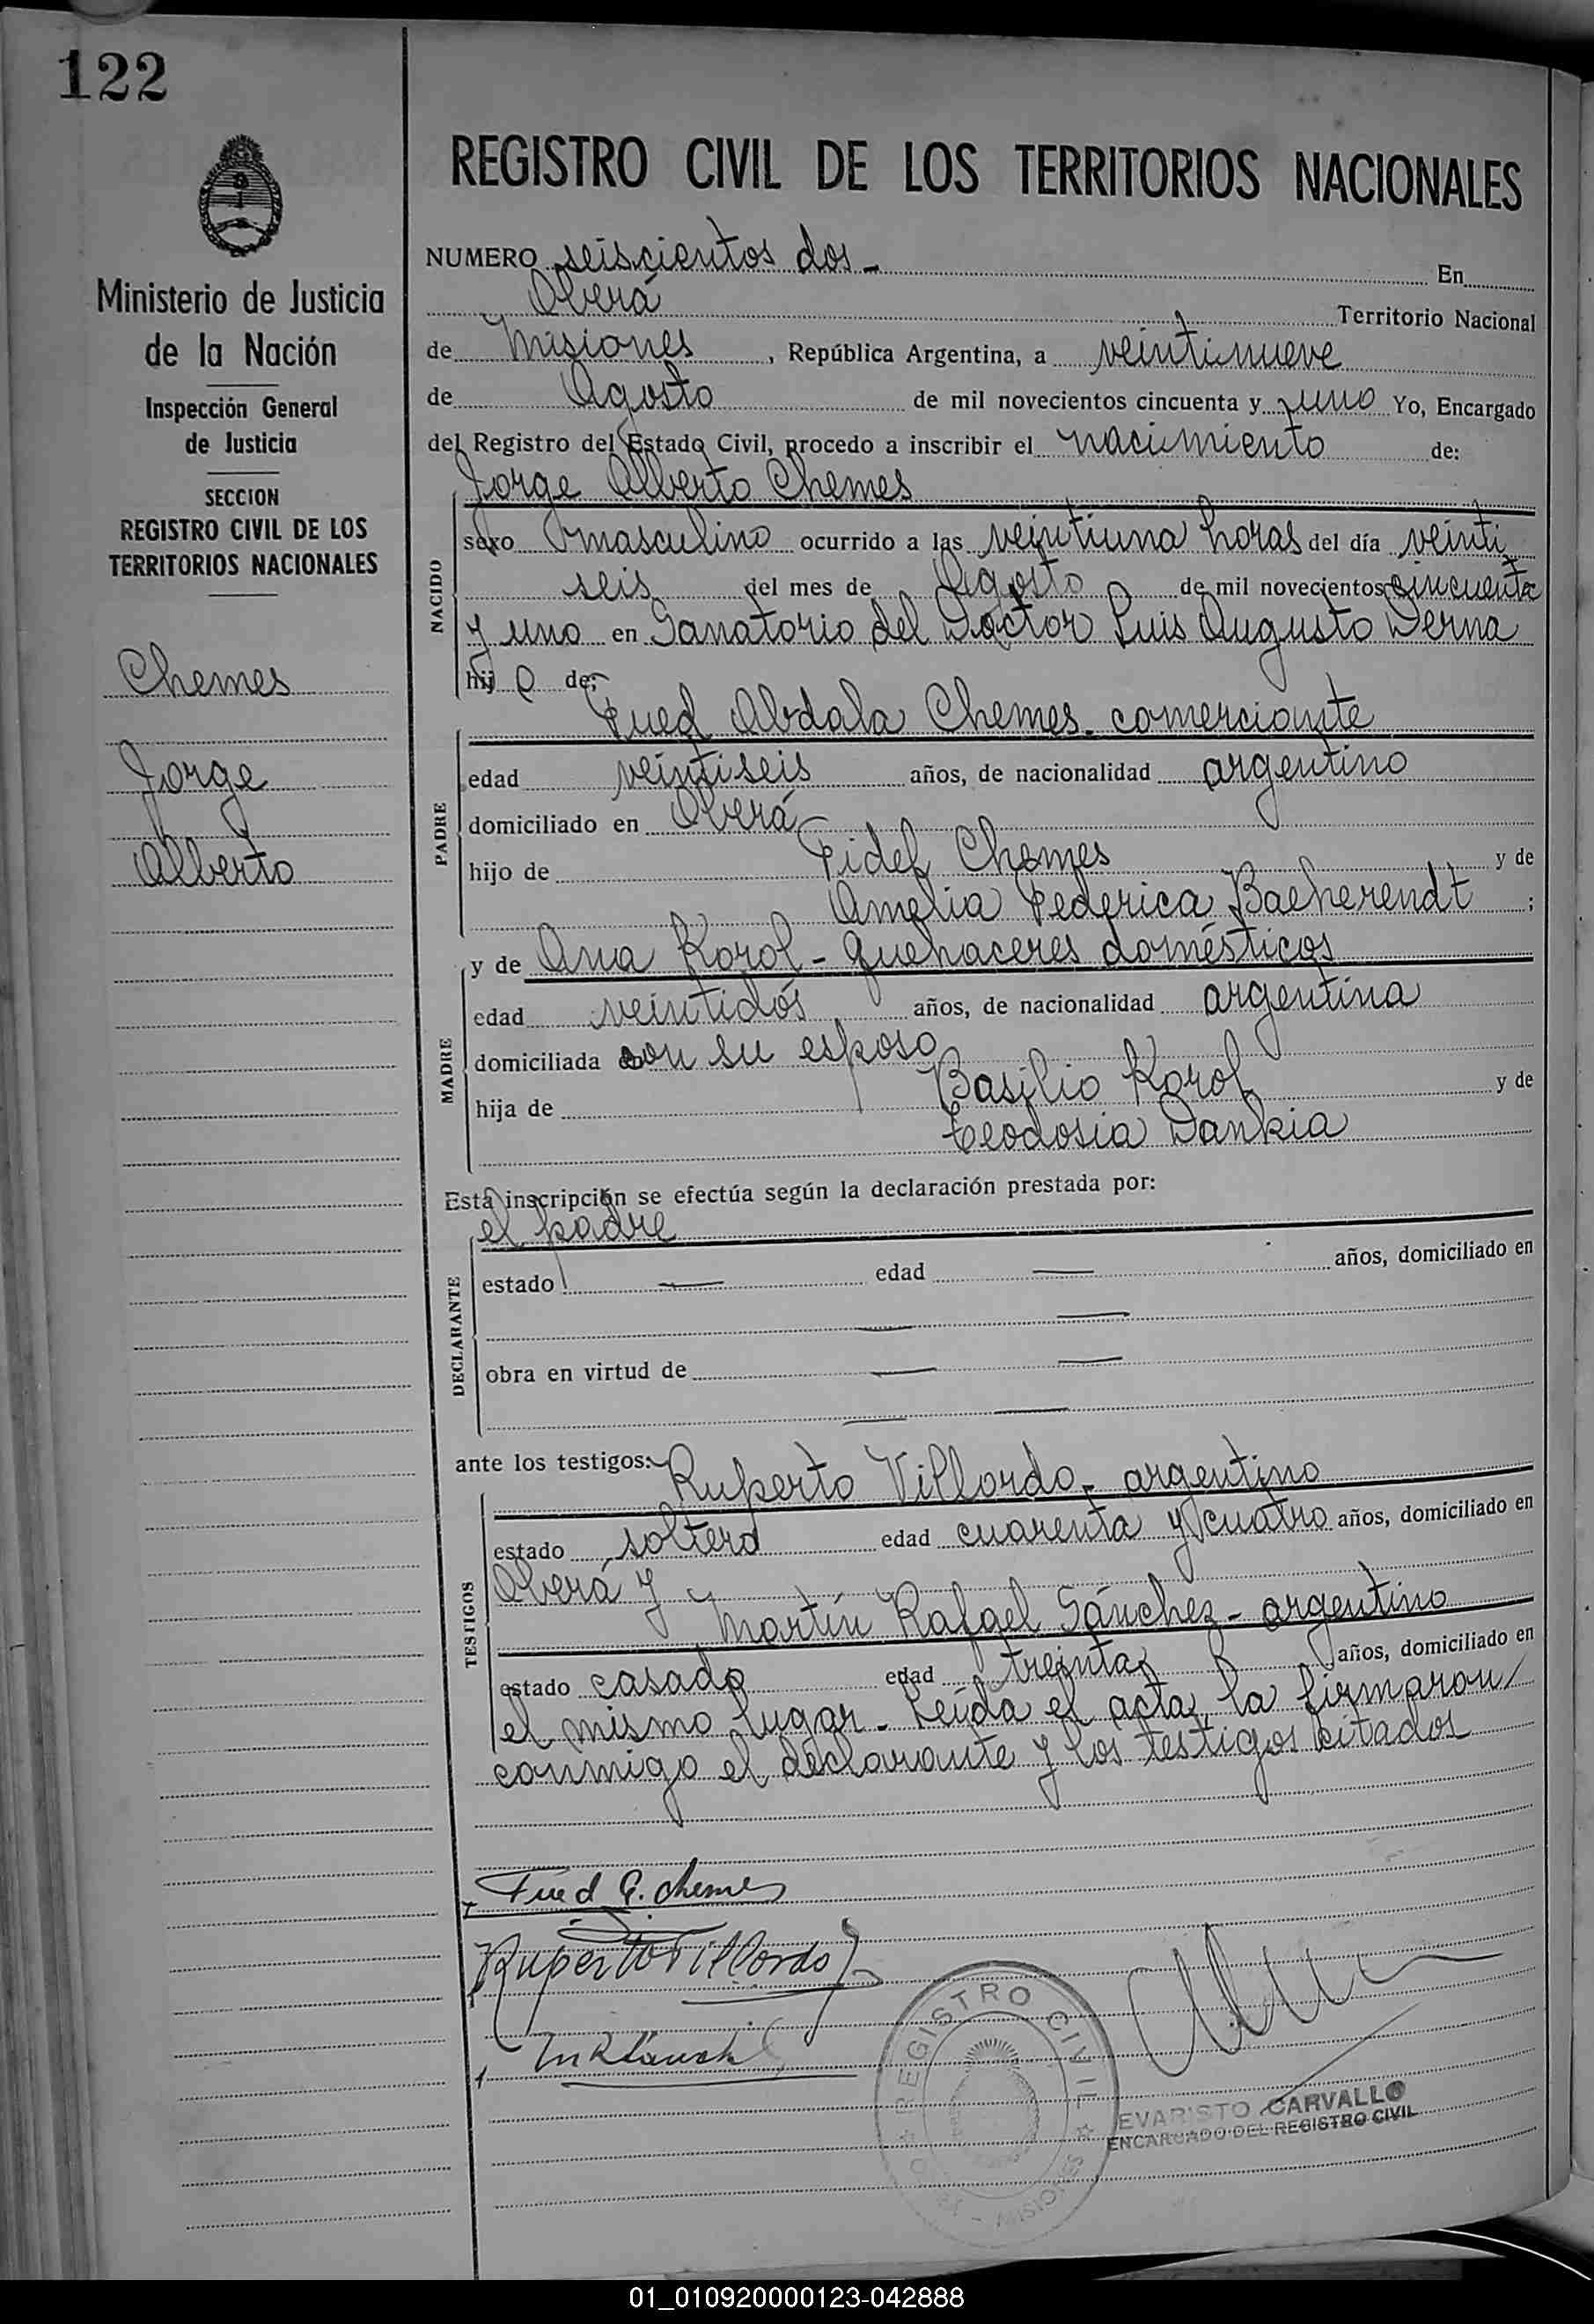 122
REGISTRO CIVIL DE LOS TERRITORIOS NACIONALES
Ministerio de Justicia
de la Nación
Inspección General
de Justicia
SECCION
REGISTRO CIVIL DE LOS
TERRITORIOS NACIONALES
Chemes
Jorge
Alberto
NUMERO seiscientos dos - En
Oberá Territorio Nacional
de Misiones, República Argentina, a veintinueve
de Agosto de mil novecientos cincuenta y uno Yo, Encargado
del Registro del Estado Civil, procedo a inscribir el nacimiento de:
Jorge Alberto Chemes
NACIDO
sexo masculino ocurrido a las veintiuna horas del día veinti
seis del mes de Agosto de mil novecientos cincuenta
y uno en Sanatorio del Doctor Luis Augusto Derna
hijo de:
Fued Abdala Chemes - comerciante
PADRE
edad veintiseis años, de nacionalidad argentino
domiciliado en Oberá
hijo de Fidel Chemes y de
Amelia Federica Baeherendt ;
y de Ana Korol - quehaceres domésticos
MADRE
edad veintidós años, de nacionalidad argentina
domiciliada con su esposo
hija de Basilio Korol y de
Teodosia Dankia
Esta inscripción se efectúa según la declaración prestada por:
el padre
DECLARANTE
estado — edad — años, domiciliado en
— —
obra en virtud de — —
— —
ante los testigos: Ruperto Villordo - argentino
TESTIGOS
estado soltero edad cuarenta y cuatro años, domiciliado en
Oberá y
Martín Rafael Sánchez - argentino
estado casado edad treinta años, domiciliado en
el mismo lugar - Leída el acta, la firmaron
conmigo el declarante y los testigos citados
Fued A. Chemes
Ruperto Villordo
REGISTRO CIVIL
MISIONES
EVARISTO CARVALLO
ENCARGADO DEL REGISTRO CIVIL
01_010920000123-042888